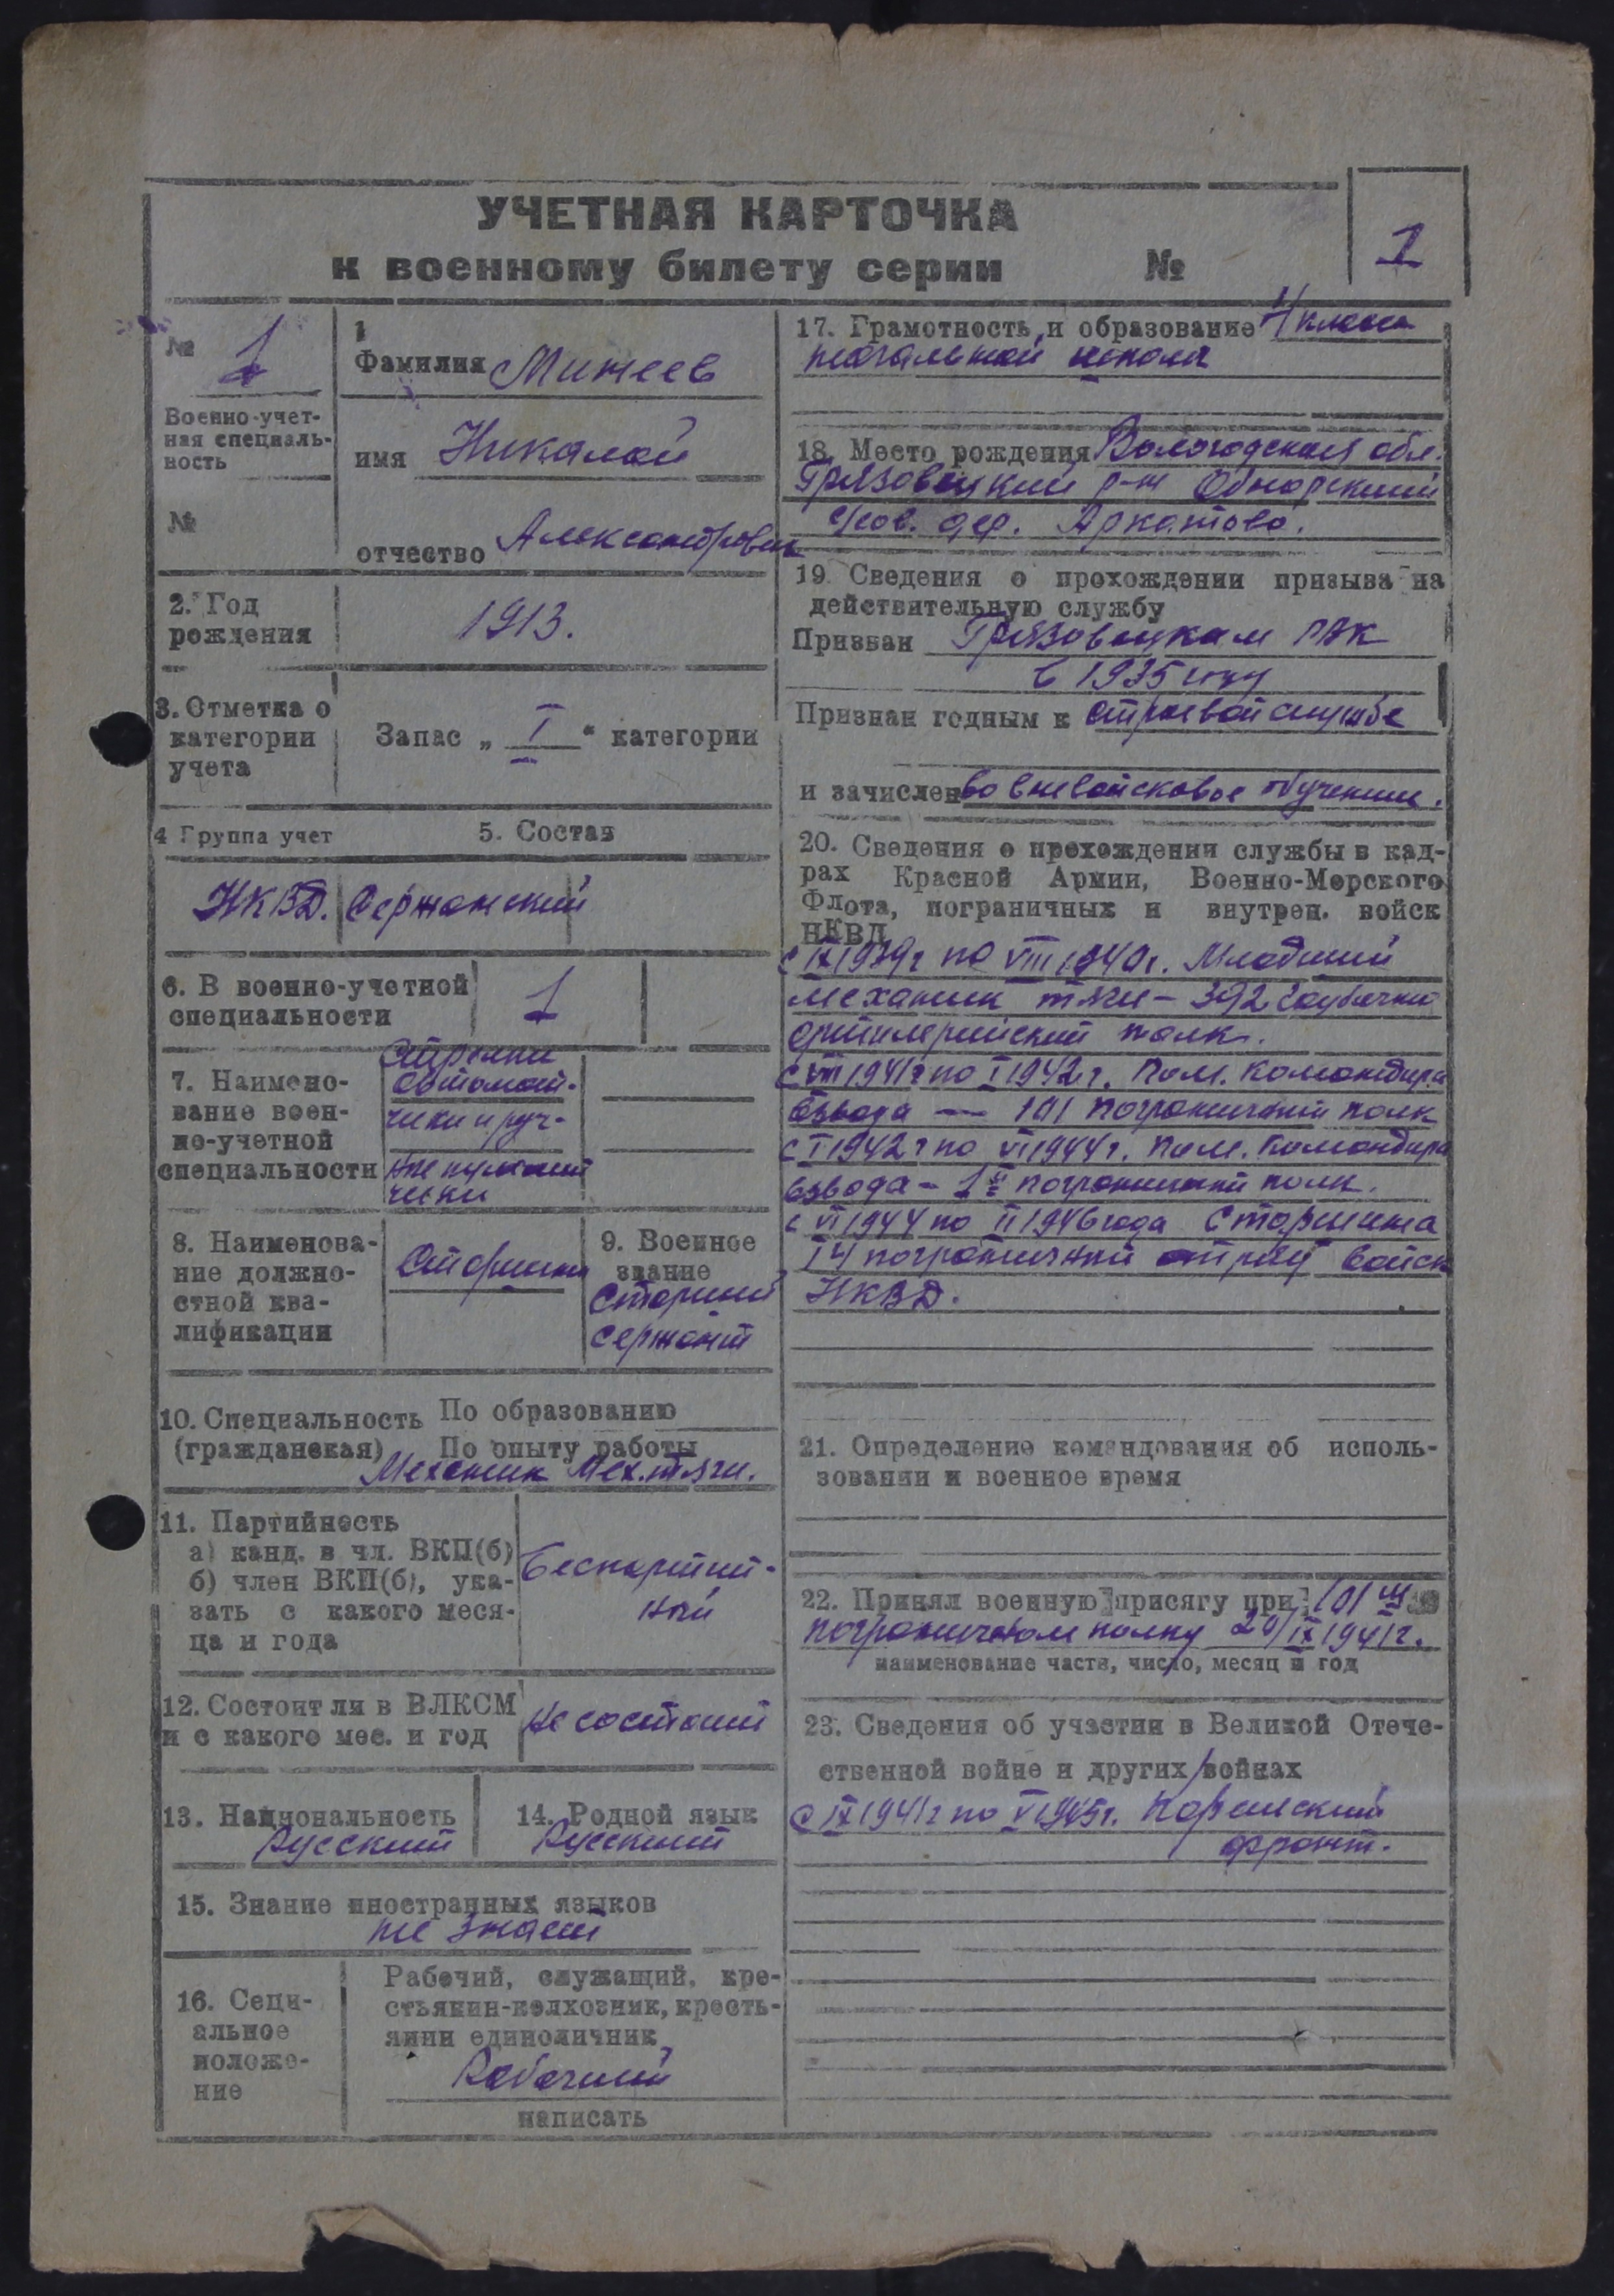 УЧЕТНАЯ КАРТОЧКА
к военному билету серии №
1
№ 1
Военно-учет-
ная специаль-
ность
№
1
Фамилия Минеев
имя Николай
отчество Александрович
2. Год
рождения
1913.
3. Отметка о
категории
учета
Запас „ I “ категории
4 Группа учет
5. Состав
НКВД. Сержанский
6. В военно-учетной
специальности
1
7. Наимено-
вание воен-
но-учетной
специальности
Стрелки
автомат-
чики и руч-
ные пулемет
чики
8. Наименова-
ние должно-
стной ква-
лификации
Старшина
9. Военное
звание
Старший
сержант
10. Специальность По образованию
(гражданская) По опыту работы
Механик Мех.тяги.
11. Партийность
а) канд. в чл. ВКП(б)
б) член ВКП(б), ука-
зать с какого меся-
ца и года
Беспартий-
ный
12. Состоит ли в ВЛКСМ
и с какого мес. и год
Не состоит
13. Национальность
Русский
14. Родной язык
Русский
15. Знание иностранных языков
не знает
16. Соци-
альное
положе-
ние
Рабочий, служащий, кре-
стьянин-колхозник, кресть-
янин единоличник
Рабочий
написать
17. Грамотность и образование 4 класса
начальной школы
18. Место рождения Вологодская обл.
Грязовецкий р-н Обнорский
с/сов. дер. Аркатово.
19. Сведения о прохождении призыва на
действительную службу
Призван Грязовецкам РВК
в 1935 году
Признан годным к строевой службе
и зачислен во вневойсковое обучение.
20. Сведения о прохождении службы в кад-
рах Красной Армии, Военно-Морского
Флота, пограничных и внутрен. войск
НКВД
с IX 1939г по VIII 1940г. Младший
механик тяги - 392 Гаубично
артилерийский полк.
с VIII 1941г по I 1942г. Пом. Командира
взвода — 101 пограничный полк
с I 1942г по VI 1944г. Пом. Командира
взвода - 1й пограничный полк.
с VI 1944 по II 1946 года Старшина
14 пограничный отряд войск
НКВД.
21. Определение командования об исполь-
зовании и военное время
22. Принял военную присягу при 101 м
пограничном полку 20/IX 1941г.
наименование части, число, месяц и год
23. Сведения об участии в Великой Отече-
ственной войне и других войнах
с IX 1941г по V 1945г. Корельский
фронт.